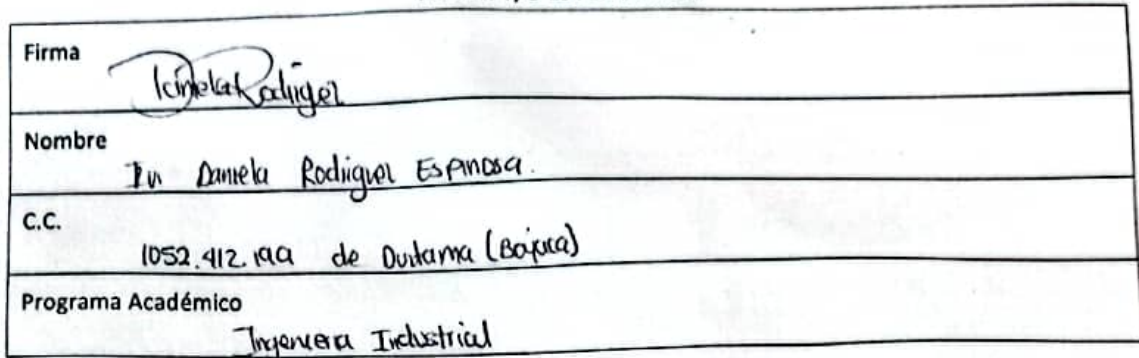 Firma
Daniela Rodriguez
Nombre
Daniela Rodriguez Espinosa.
C.C.
de Duitama (Boyaca)
Programa Académico
Ingeniera Industrial